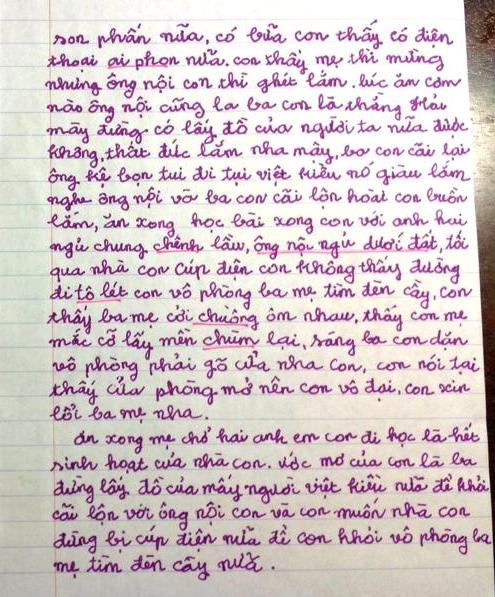 son phấn nữa, có bữa con thấy có điện
thoại ai phon nữa. con thấy mẹ thì mừng
nhưng ông nội con thì ghét lắm. lúc ăn cơm
nào ông nội cũng la ba con là thằng Hải
mày đừng có lấy đồ của người ta nữa được
không, thất đức lắm nha mày, ba con cãi lại
ông kệ bọn tui đi tụi việt kiều nó giàu lắm
nghe ông nội và ba con cãi lộn hoài con buồn
lắm, ăn xong học bài xong con với anh hai
ngủ chung chênh lầu, ông nội ngủ dưới đất, tối
qua nhà con cúp điện con không thấy đường
đi tô lét con vô phòng ba mẹ tìm đèn cầy, con
thấy ba mẹ cởi chuồng ôm nhau, thấy con mẹ
mắc cỡ lấy mền chùm lại, sáng ba con dặn
vô phòng phải gõ cửa nha con, con nói tại
thấy cửa phòng mở nên con vô đại, con xin
lỗi ba mẹ nha.
ăn xong mẹ chở hai anh em con đi học là hết
sinh hoạt của nhà con. ước mơ của con là ba
đừng lấy đồ của mấy người việt kiều nữa để khỏi
cãi lộn với ông nội con và con muốn nhà con
đừng bị cúp điện nữa để con khỏi vô phòng ba
mẹ tìm đèn cầy nữa.